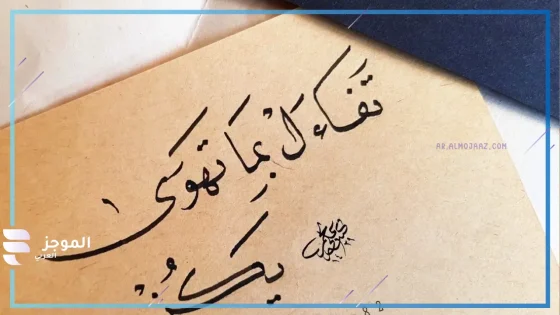 تفاءَلْ بِمَا تَهوَى
يكُنْ
AR.ALMOJAAZ.COM
الموجز
العربي